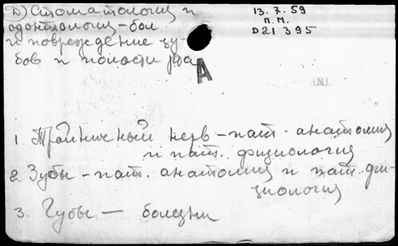 D) Стоматология и
одонтология - бол.
и повреждение зу-
бов и полости рта
13.7.59
п.м.
D21395
A
1. Тройничный нерв - пат. анатомия
и пат. физиология
2. Зубы - пат. анатомия и пат. фи-
зиология
3. Губы - болезни